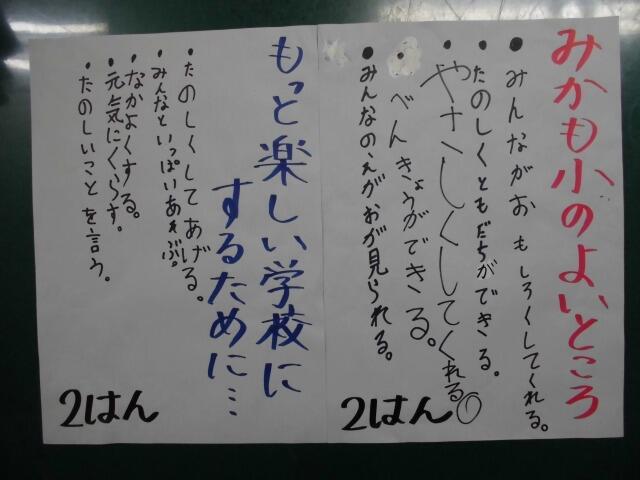 みかも小のよいところ
・みんながおもしろくしてくれる。
・たのしくともだちができる。
・やさしくしてくれる①
・べんきょうができる。
・みんなのえがおが見られる。
2はん
もっと楽しい学校に
するために…
・たのしくしてあげる。
・みんなといっぱいあそぶ。
・なかよくする。
・元気にくらす。
・たのしいことを言う。
2はん